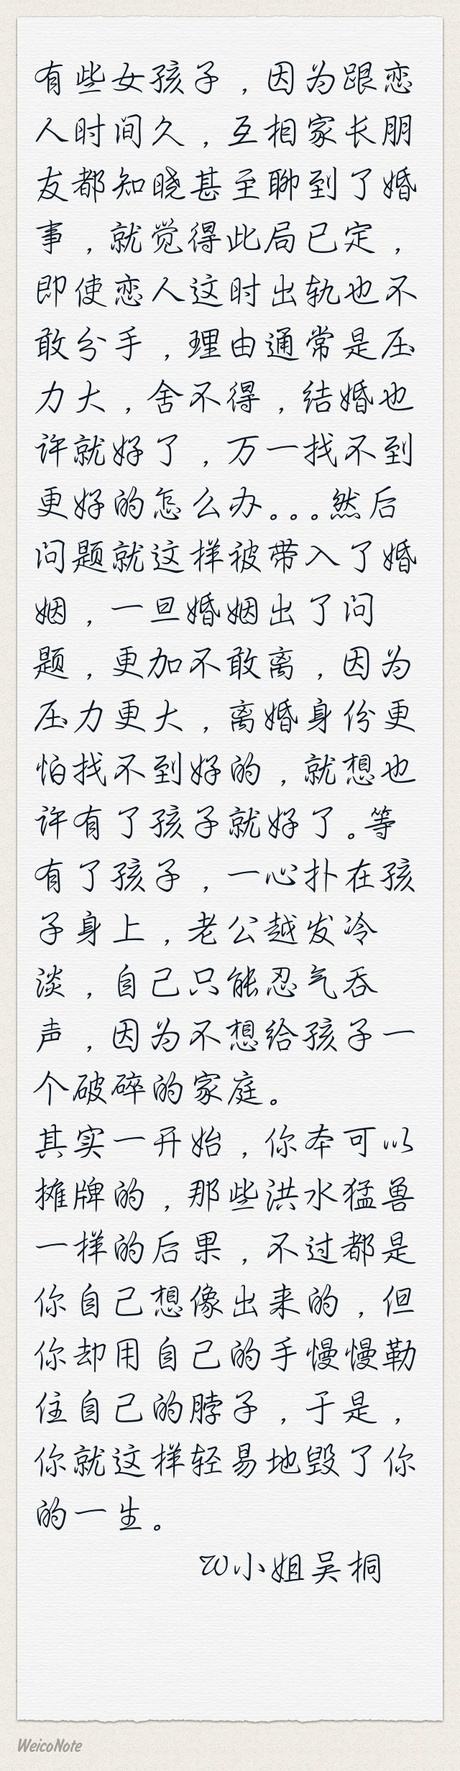 有些女孩子，因为跟恋
人时间久，互相家长朋
友都知晓甚至聊到了婚
事，就觉得此局已定，
即使恋人这时出轨也不
敢分手，理由通常是压
力大，舍不得，结婚也
许就好了，万一找不到
更好的怎么办。。。然后
问题就这样被带入了婚
姻，一旦婚姻出了问
题，更加不敢离，因为
压力更大，离婚身份更
怕找不到好的，就想也
许有了孩子就好了。等
有了孩子，一心扑在孩
子身上，老公越发冷
淡，自己只能忍气吞
声，因为不想给孩子一
个破碎的家庭。
其实一开始，你本可以
摊牌的，那些洪水猛兽
一样的后果，不过都是
你自己想像出来的，但
你却用自己的手慢慢勒
住自己的脖子，于是，
你就这样轻易地毁了你
的一生。
W小姐吴桐
WeicoNote